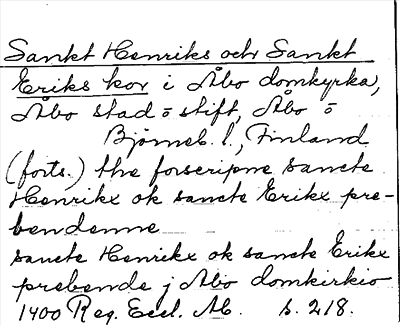 Sankt Henriks och Sankt
Eriks kor i Åbo domkyrka,
Åbo stad o stift, Åbo o
Björneb. l., Finland
(forts.) the forscripne sancte
Henrikx ok sancte Erikx pre-
bendenne
sancte Henrikx ok sancte Erikx
prebende j Åbo domkirkio
1400 Reg. Eccl. Ab. s. 218.